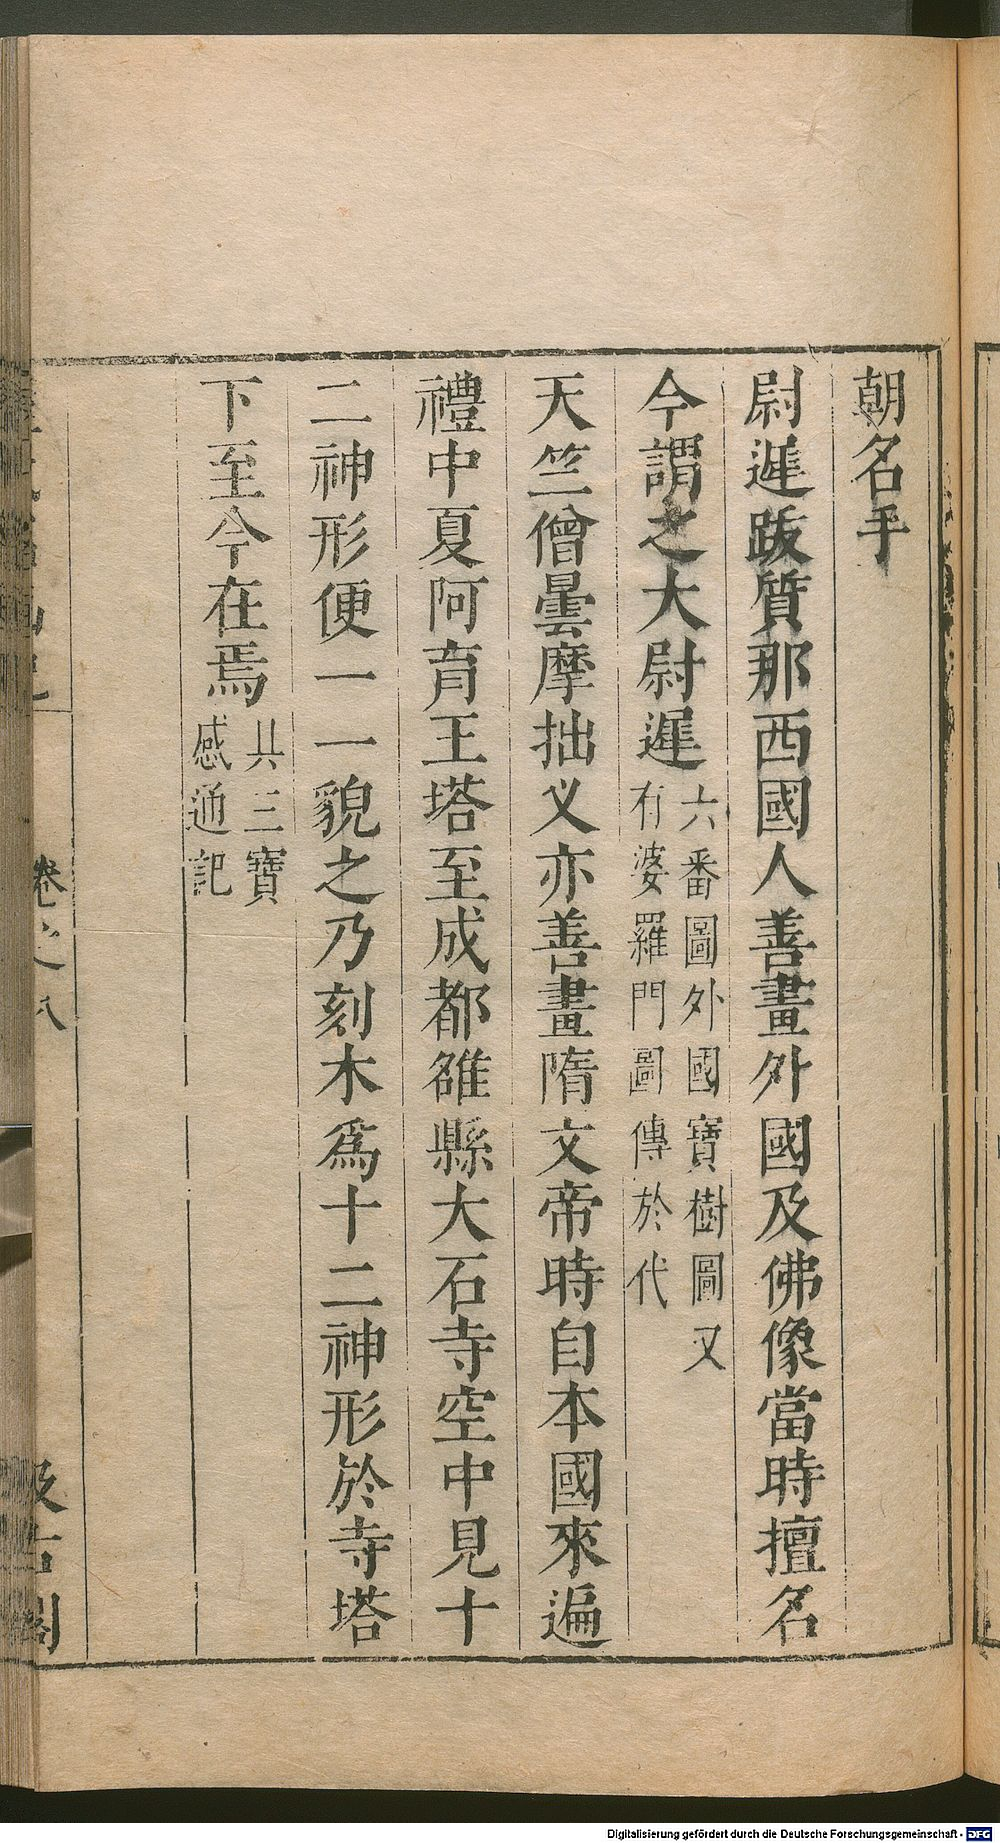 朝名手
尉遲跋質那西國人善畫外國及佛像當時擅名
今謂之大尉遲六番圖外國寶樹圖又
有婆羅門圖傳於代
天竺僧曇摩拙义亦善畫隋文帝時自本國來遍
禮中夏阿育王塔至成都雒縣大石寺空中見十
二神形便一一貌之乃刻木爲十二神形於寺塔
下至今在焉具三寶
感通記
卷之八
汲古閣
Digitalisierung gefördert durch die Deutsche Forschungsgemeinschaft - DFG